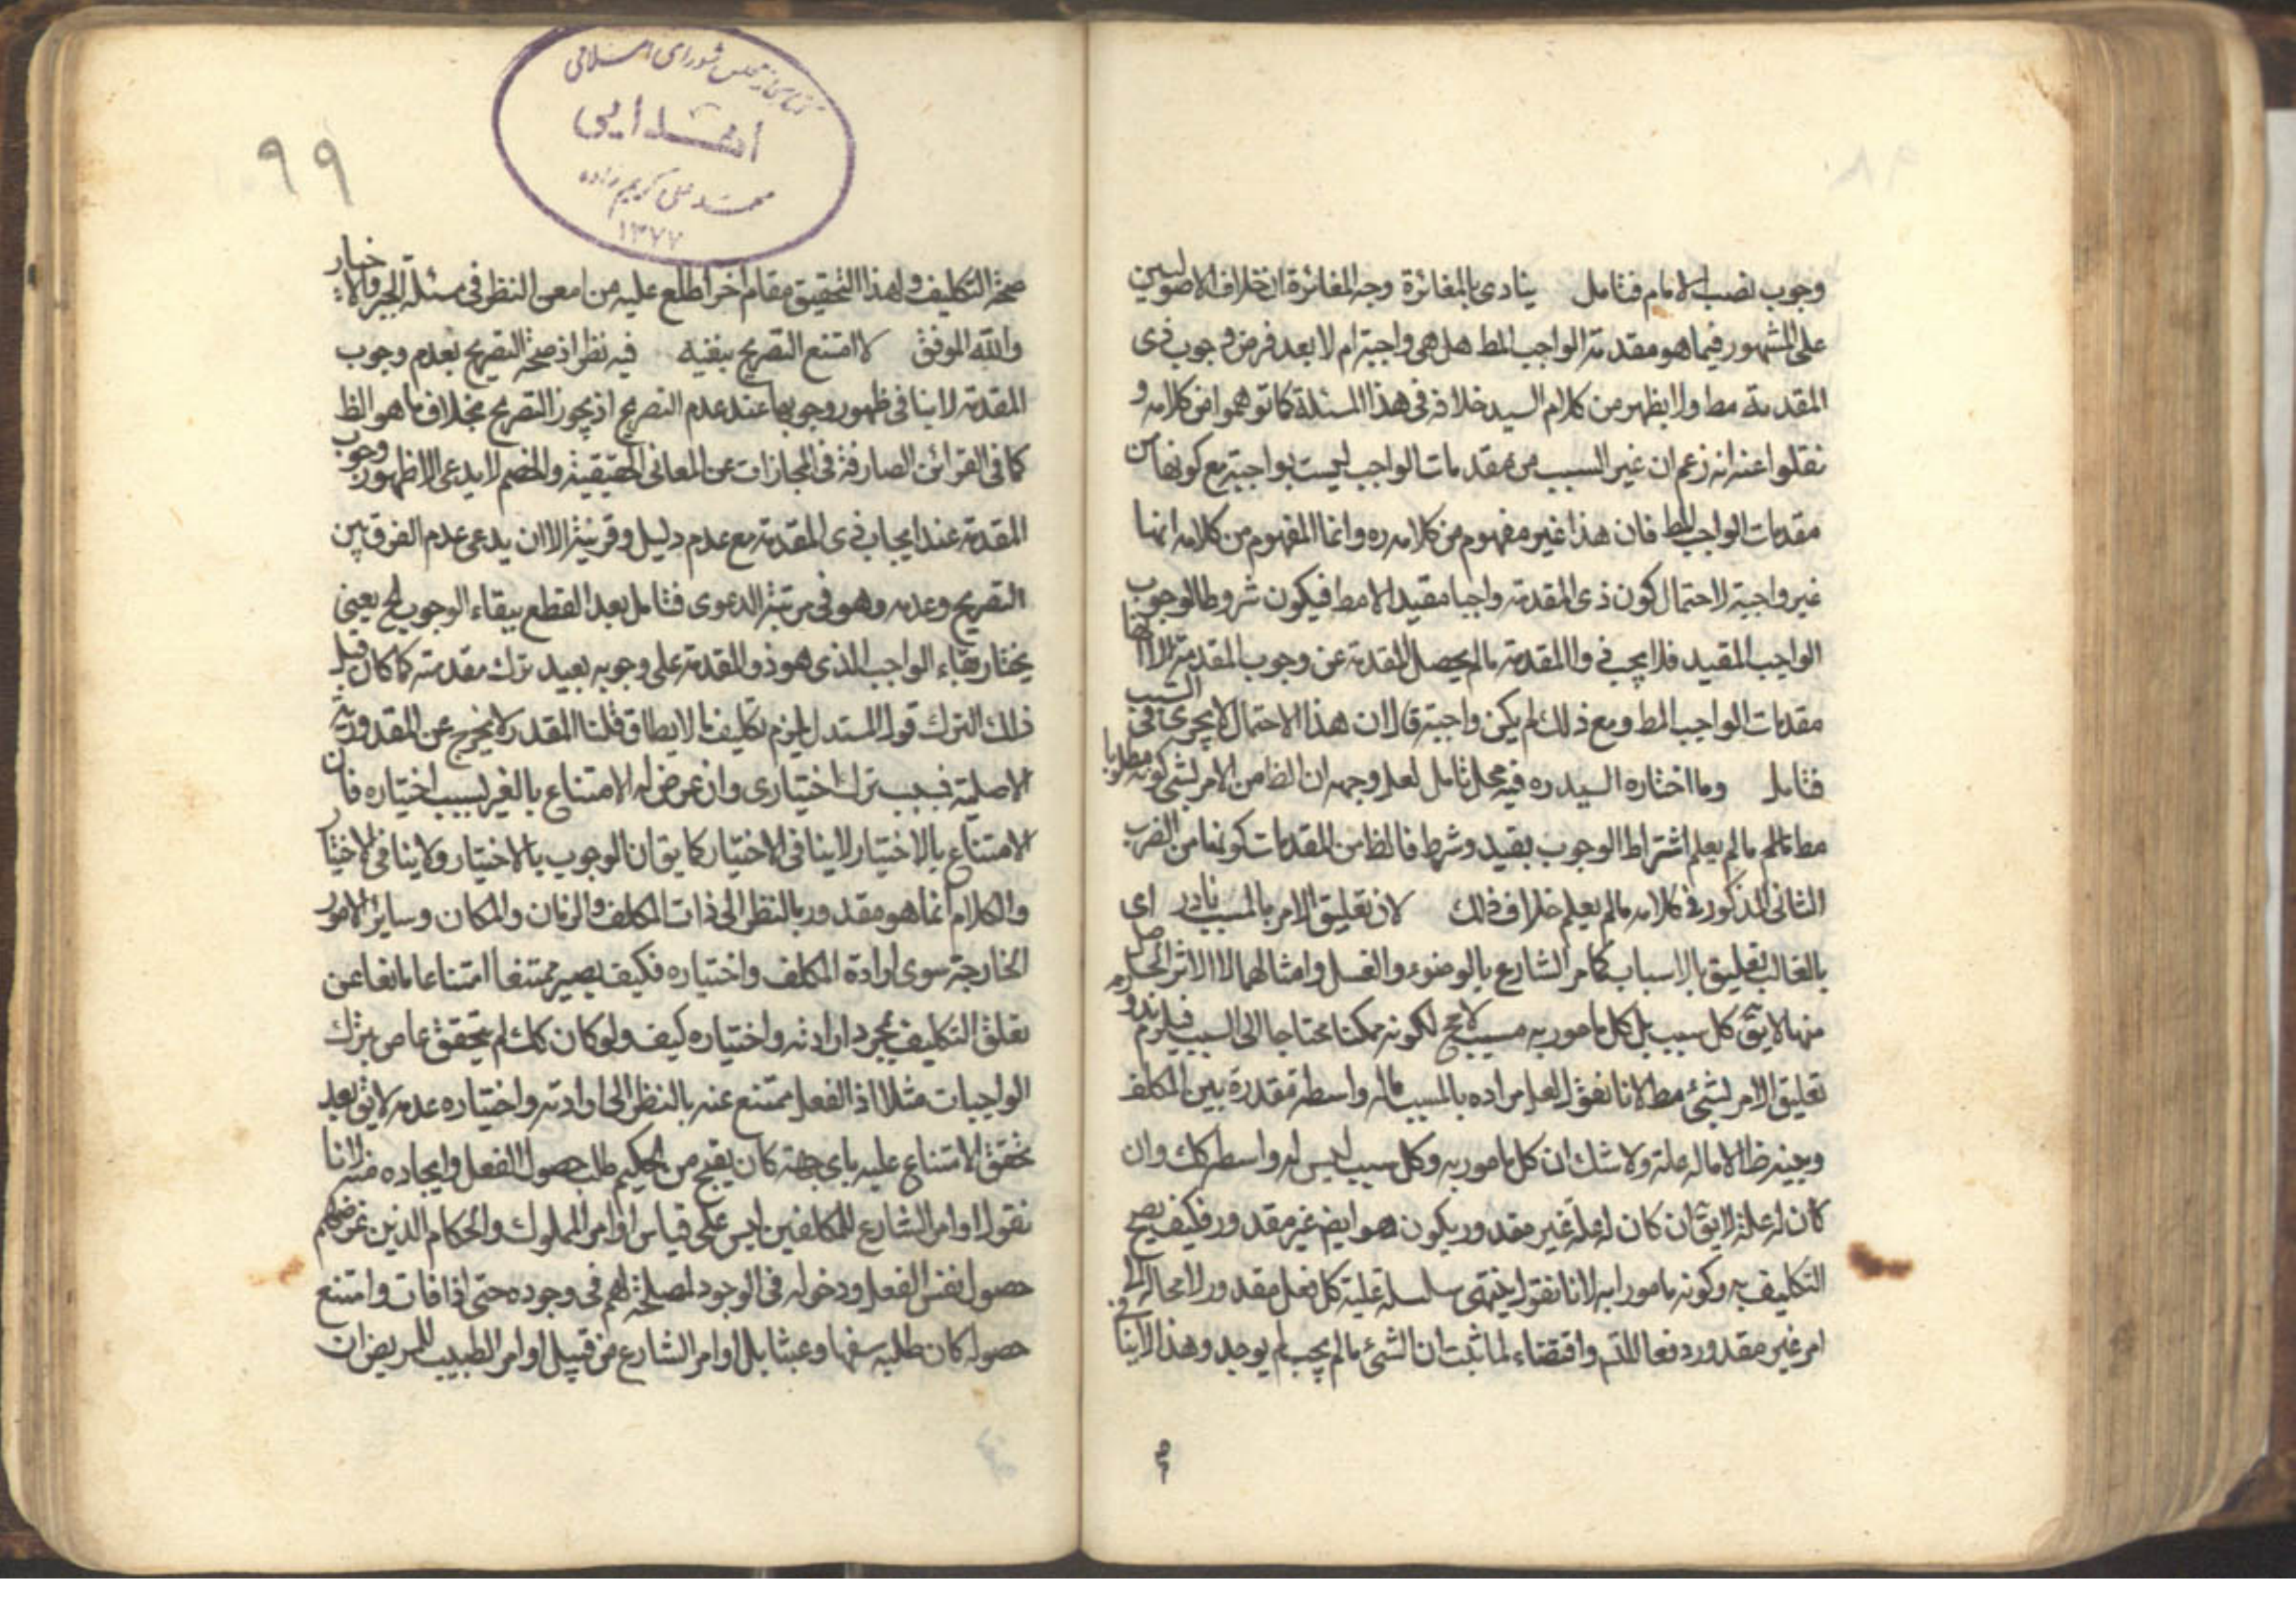 وجوب نصب الامام فتامل ينادى بالمغائرة وجه المغائرة ان خلاف الاصوليين
على المشهور فيما هو مقدمة الواجب المط هل هى واجبة ام لا بعد فرض وجوب ذى
المقدمة مط ولا يظهر من كلام السيد خلافه فى هذا المسئلة كما توهموا من كلامه و
نقلوا عنه انه زعم ان غير السبب من مقدمات الواجب ليست بواجبة مع كونها من
مقدمات الواجب المط فان هذا غير مفهوم من كلامه ره وانما المفهوم من كلامه انها
غير واجبة لاحتمال كون ذى المقدمة واجبا مقيدا لا مط فيكون شروطا لوجوب
الواجب المقيد فلا يجب ذو المقدمة ما لم يحصل المقدمة عن وجوب المقدمة لا انها
مقدمات الواجب المط ومع ذلك لم يكن واجبة قال ان هذا الاحتمال لا يجرى فى السبب
فتامل وما اختاره السيد ره فيه محل تامل لعل وجهه ان الظ من الامر بشى كونه مطلوبا
مط ما لم يعلم اشتراط الوجوب بقيد وشرط فالظ من المقدمات كونها من الضرب
الثانى المذكور فى كلامه ما لم يعلم خلاف ذلك لان تعليق الامر بالمسبب نادر اى
بالغالب تعليق بالاسباب كامر الشارع بالوضوء والغسل وامثالهما لا الاثر الحاصل
منها لا يق كل سبب بل كل مامور به مسبب لا مح لكونه ممكنا محتاجا الى السبب فيلزم ندور
تعليق الامر بشئ مط لانا نقول لعل مراده بالمسبب ماله واسطة مقدرة بين المكلف
وبينه لا ماله علة ولا شك ان كل مامور به وكل سبب ليس له واسطة كك وان
كان له علة لا يق ان كان له علة غير مقدور يكون هو ايض غير مقدور فكيف يصح
التكليف به وكونه مامورا به لانا نقول ينتهى سلسلة علية كل فعل مقدور لا محالة الى
امر غير مقدور دفعا للتس واقتضاء لما ثبت ان الشئ ما لم يجب لم يوجد وهذا لا ينافى
٩٩
كتابخانه مجلس شوراى اسلامى
اهدايى
محمد على كريم زاده
١٣٧٧
صحة التكليف ولهذا التحقيق مقام آخر اطلع عليه من امعن النظر فى مسئلة الجبر والاختيار
والله الموفق لا امتنع التصريح بنفيه فيه نظر اذ صحة التصريح بعدم وجوب
المقدمة لا ينافى ظهور وجوبها عند عدم التصريح اذ يجوز التصريح بخلاف ما هو الظ
كما فى القرائن الصارفة فى المجازات عن المعانى الحقيقية والخصم لا يدعى الا ظهور وجوب
المقدمة عند ايجاب ذى المقدمة مع عدم دليل وقرينة الا ان يدعى عدم الفرق بين
التصريح وعدمه وهو فى مرتبة الدعوى فتامل بعد القطع ببقاء الوجوب لح يعنى
يختار بقاء الواجب الذى هو ذو المقدمة على وجوبه بعيد ترك مقدمته كما كان قبل
ذلك الترك قول المستدل يلزم تكليف ما لا يطاق قلنا المقدر لا يخرج عن المقدورية
الاصلية بسبب ترك اختيارى وان عرض له الامتناع بالغير بسبب اختياره فان
الامتناع بالاختيار لا ينافى الاختيار كما يق ان الوجوب بالاختيار ولا ينافى الاختيار
والكلام انما هو مقدور بالنظر الى ذات المكلف والزمان والمكان وساير الامور
الخارجة سوى ارادة المكلف واختياره فكيف يصير ممتنعا امتناعا مانعا عن
تعلق التكليف بمجرد ارادته واختياره كيف ولو كان كك لم يتحقق عاص بترك
الواجبات مثلا اذ الفعل ممتنع عنه بالنظر الى ارادته واختياره عدمه لا يق بعد
تحقق الامتناع عليه باى جهة كان يقبح من الحكيم طلب حصول الفعل وايجاده منه لانا
نقول اوامر الشارع للمكلفين ليس على قياس اوامر الملوك والحكام الذين غرضهم
حصول نفس الفعل ودخوله فى الوجود لمصلحة لهم فى وجوده حتى اذا فات وامتنع
حصوله كان طلبه سفها وعبثا بل اوامر الشارع من قبيل اوامر الطبيب للمريض ان